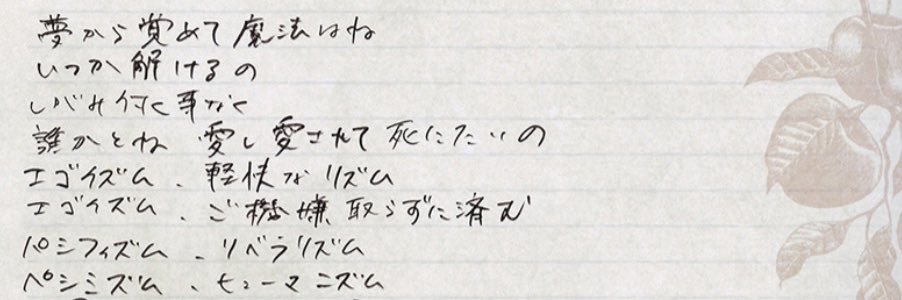 夢から覚めて魔法はね
いつか解けるの
しがみ付く事なく
誰かとね 愛し愛されて死にたいの
エゴイズム、軽快なリズム
エゴイズム、ご機嫌取らずに済む
パシフィズム、リベラリズム
ペシミズム、ヒューマニズム